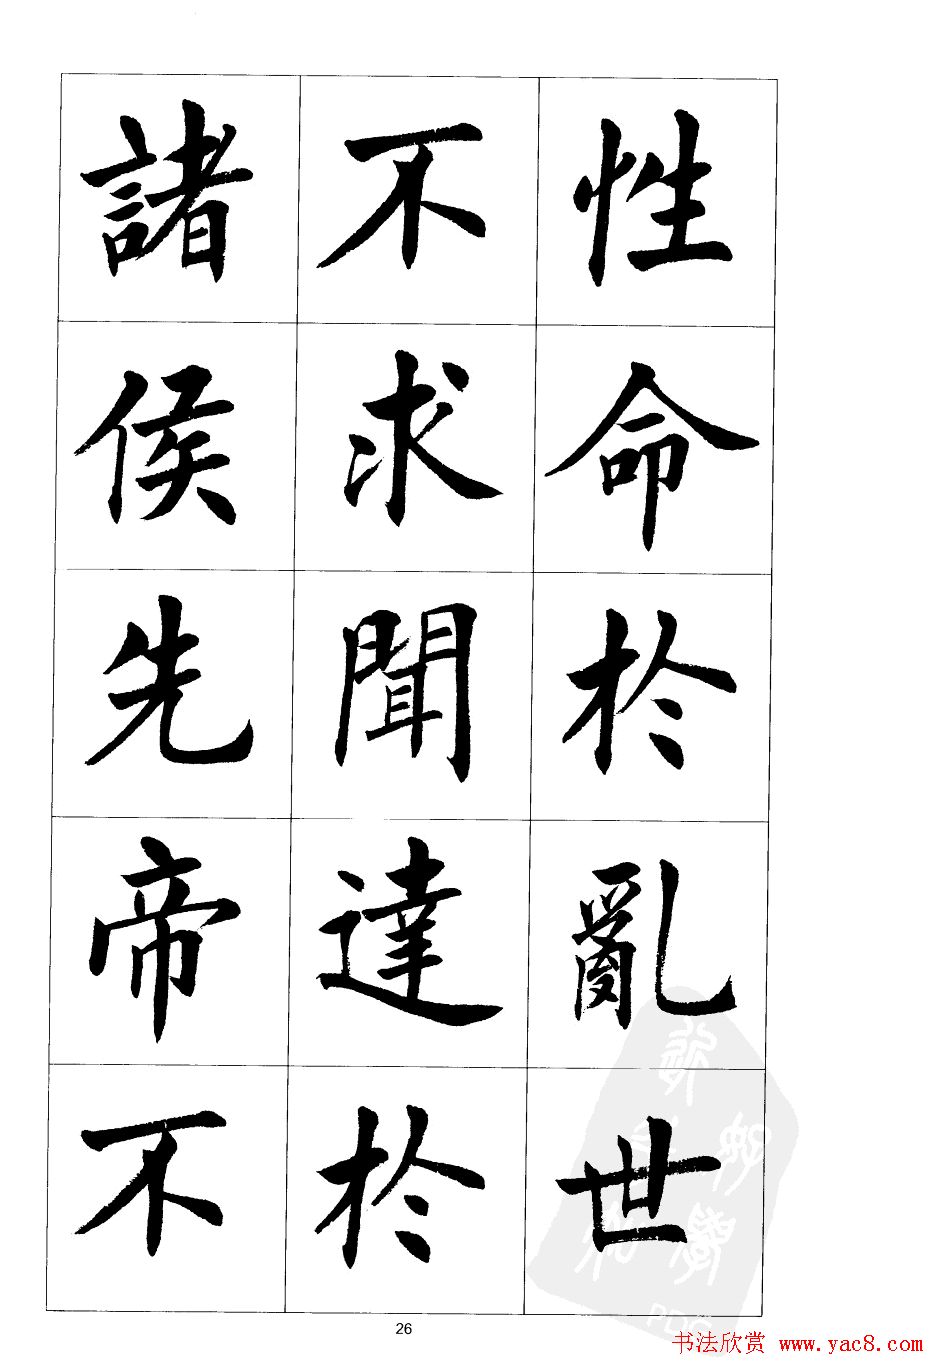 性命於亂世
不求聞達於
諸侯先帝不
26
书法欣赏 www.yac8.com